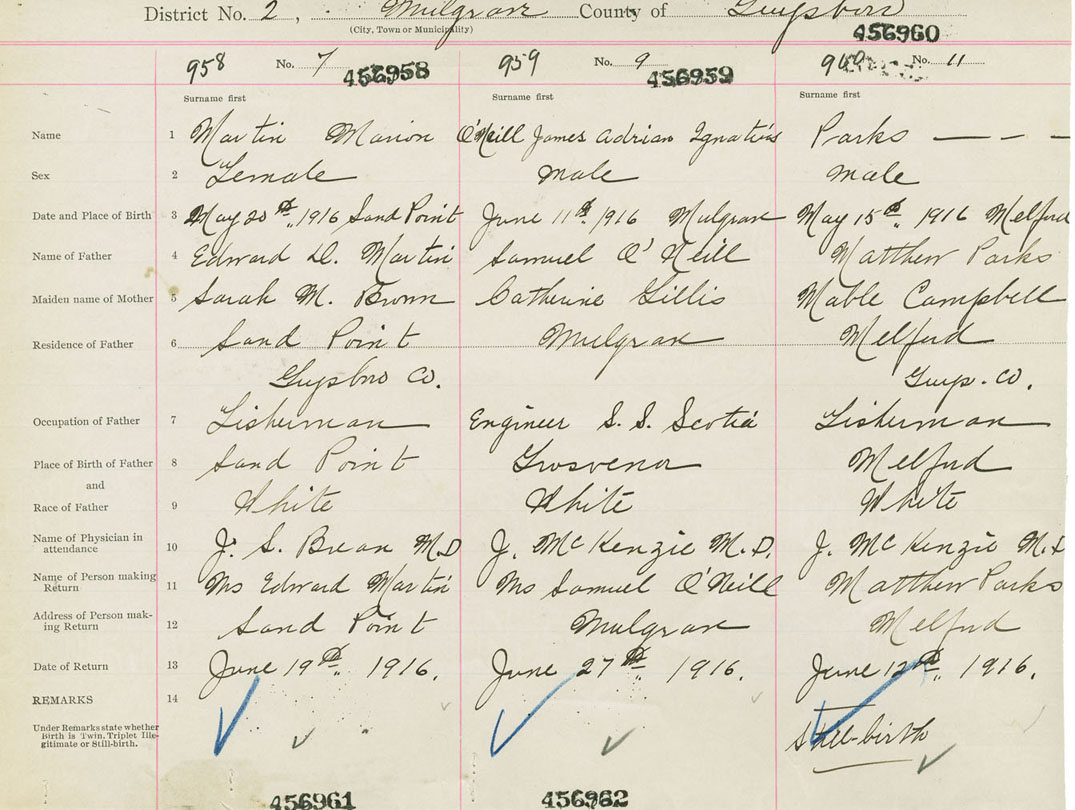 District No. 2, Mulgrave County of Guysboro
(City, Town or Municipality)
456960
958 No. 7 456958 959 No. 9 456959 No. 11
Surname first Surname first Surname first
Name 1 Martin Marion O'Neill James Adrian Ignatius Parks — - -
Sex 2 Female Male Male
Date and Place of Birth 3 May 20th, 1916 Sand Point June 11th 1916 Mulgrave May 15th 1916 Melford
Name of Father 4 Edward D. Martin Samuel O'Neill Matthew Parks
Maiden name of Mother 5 Sarah M. Brown Catherine Gillis Mable Campbell
Residence of Father 6 Sand Point Mulgrave Melford
Guysboro Co. Guys. Co.
Occupation of Father 7 Fisherman Engineer S. S. Scotia Fisherman
Place of Birth of Father 8 Sand Point Grosvenor Melford
and
Race of Father 9 White White White
Name of Physician in
attendance 10 J. S. M.D J. McKenzie M.D. J. McKenzie M.D
Name of Person making
Return 11 Mrs Edward Martin Mrs Samuel O'Neill Matthew Parks
Address of Person mak-
ing Return 12 Sand Point Mulgrave Melford
Date of Return 13 June 19th, 1916. June 27th, 1916. June 12th, 1916.
REMARKS 14
Under Remarks state whether
Birth is Twin, Triplet Ille-
gitimate or Still-birth.
Still-birth
456961 456962